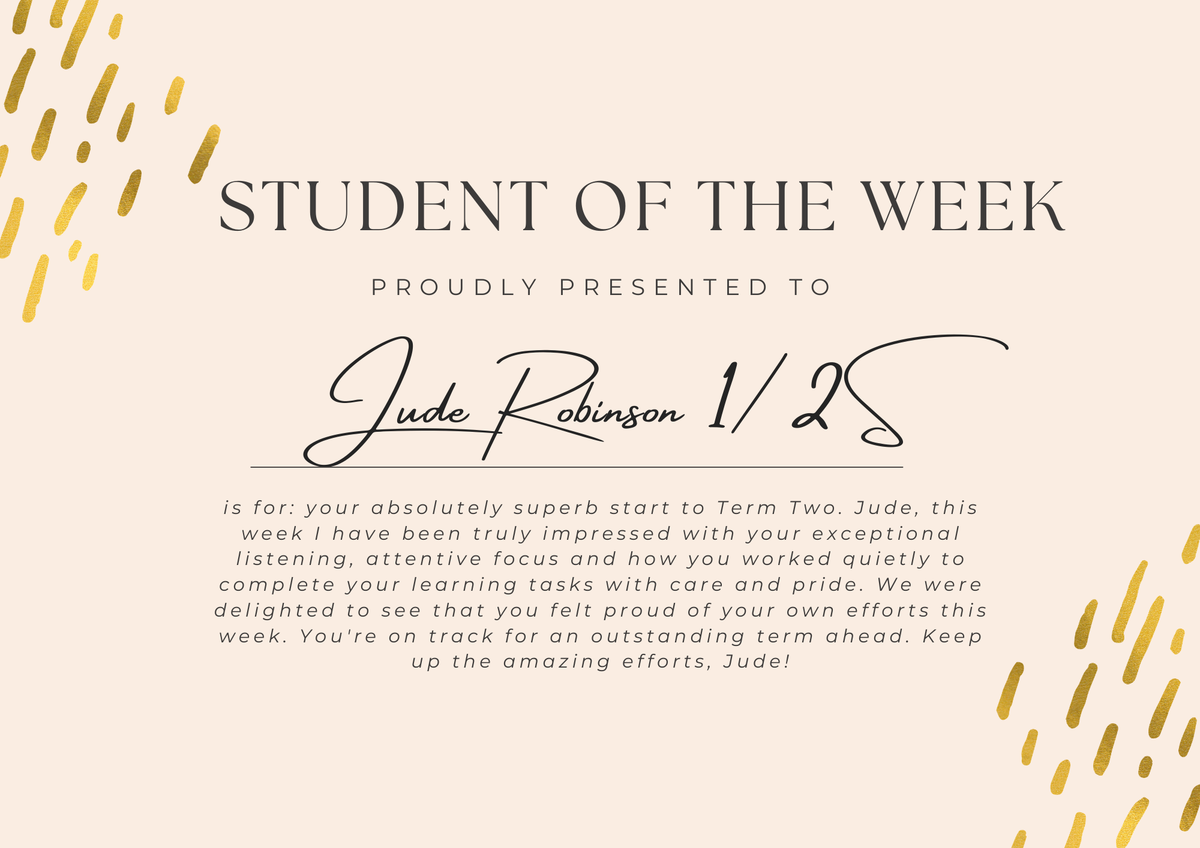 STUDENT OF THE WEEK
PROUDLY PRESENTED TO
Jude Robinson 1/2S
is for: your absolutely superb start to Term Two. Jude, this
week I have been truly impressed with your exceptional
listening, attentive focus and how you worked quietly to
complete your learning tasks with care and pride. We were
delighted to see that you felt proud of your own efforts this
week. You're on track for an outstanding term ahead. Keep
up the amazing efforts, Jude!